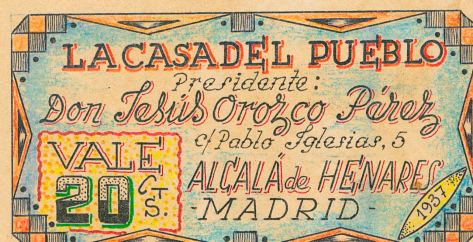 LA CASA DEL PUEBLO
Presidente:
Don Jesús Orozco Pérez
c/ Pablo Iglesias, 5
VALE
20 CTS.
ALCALÁ de HENARES
-MADRID-
1937